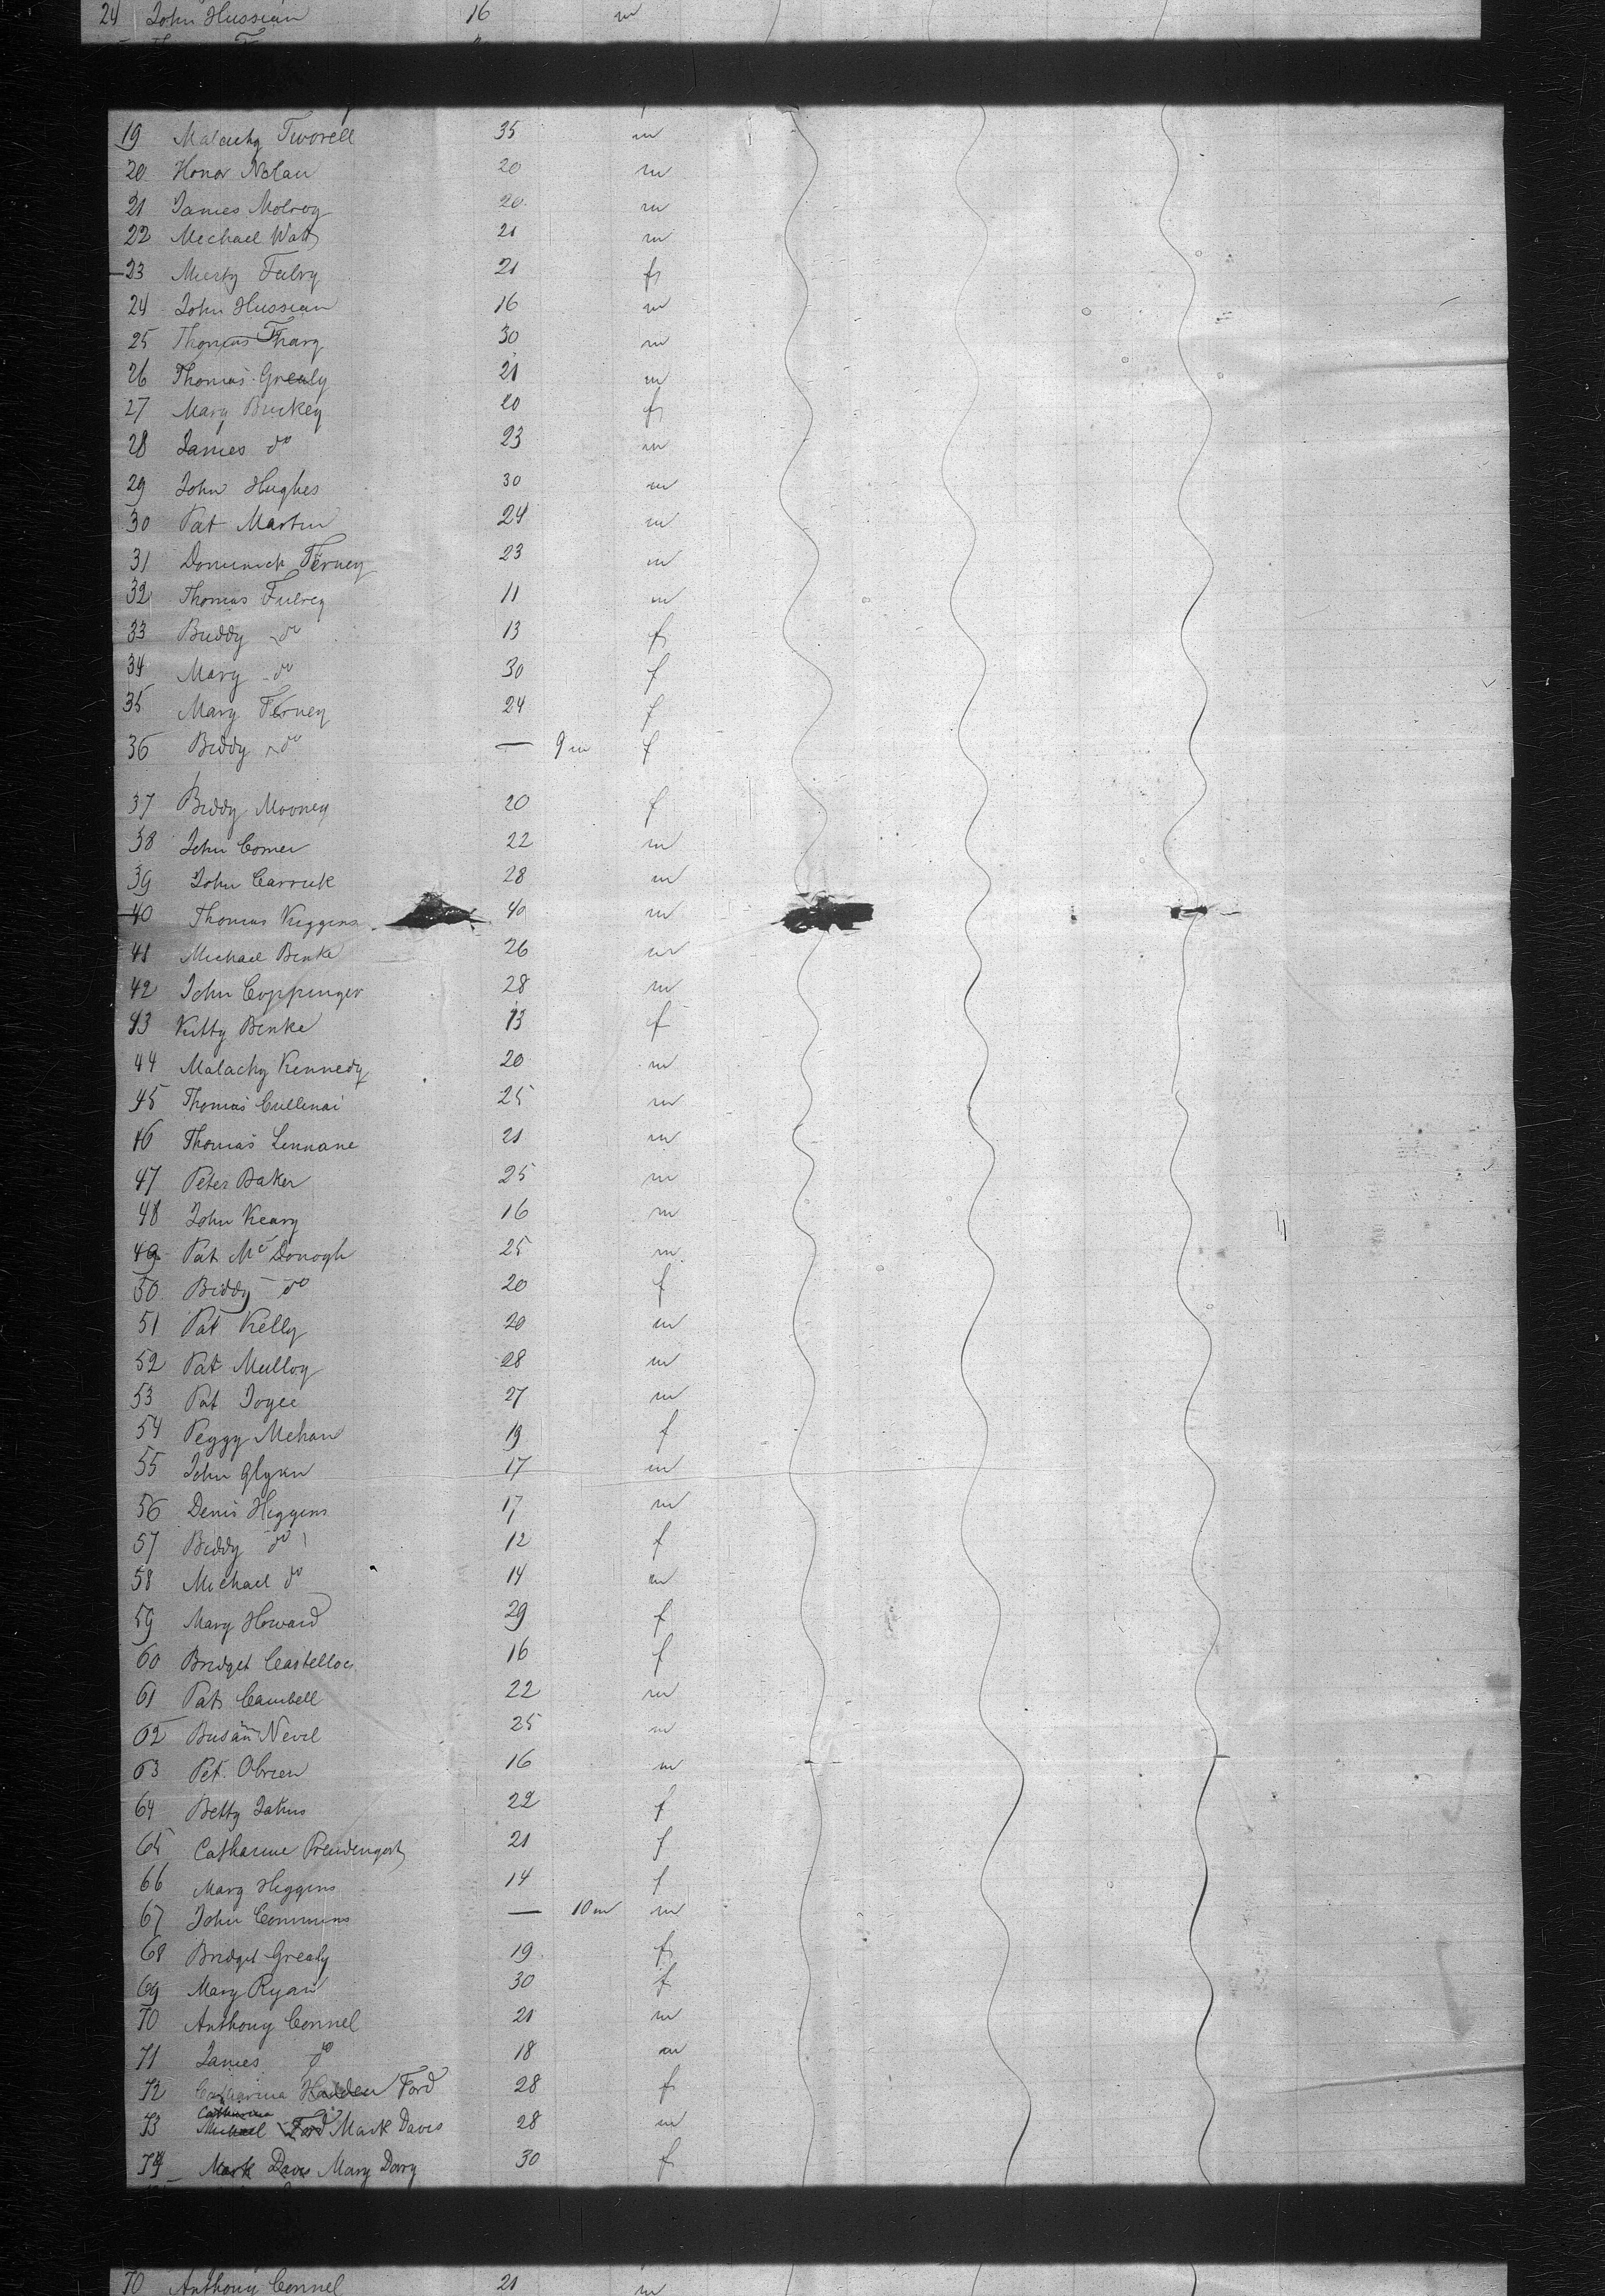 24 John Hussian 16 m
19 Malachy Tworell 35 m
20 Honor Nolan 20 m
21 James Molroy 20 m
22 Mechael Watt 21 m
23 21 f
24 John Hussian 16 m
25 Thomas 30 m
26 Thomas Grealy 21 m
27 Mary Buckey 20 f
28 James do 23 m
29 John Hughes 30 m
30 Pat Martin 24 m
31 Dominick Ferney 23 m
32 Thomas Fulrey 11 m
33 Buddy do 13 f
34 Mary do 30 f
35 Mary Ferney 24 f
36 Biddy do — 9 m f
37 Biddy Mooney 20 f
38 John Comer 22 m
39 John Carrick 28 m
40 Thomas Kiggins 40 m
41 Michael Binke 26 m
42 John Coppinger 28 m
43 Kitty Binke 13 f
44 Malachy Kennedy 20 m
45 Thomas Cullinai 25 m
46 Thomas Lennane 21 m
47 Peter Baker 25 m
48 John Keary 16 m
49 Pat Mc Donogh 25 m
50 Biddy do 20 f
51 Pat Kelly 20 m
52 Pat Mulloy 28 m
53 Pat Joyce 27 m
54 Peggy Mehan 19 f
55 John Glynn 17 m
56 Denis Higgins 17 m
57 Biddy do 12 f
58 Michael do 14 m
59 Mary Howard 29 f
60 Bridget Castelloe 16 f
61 Pat Cambell 22 m
62 Nevil 25 m
63 Pet Obrien 16 m
64 Betty 22 f
65 Catharine 21 f
66 Mary Higgins 14 f
67 John Commins — 10 m m
68 Bridget Grealy 19 f
69 Mary Ryan 30 f
70 Anthony Connel 21 m
71 James do 18 m
72 Catharina Hadden Ford 28 f
Catharina
73 Michael Ford Mark Davis 28 m
74 Mark Davis Mary Dary 30 f
70 Anthony Connel 21 m